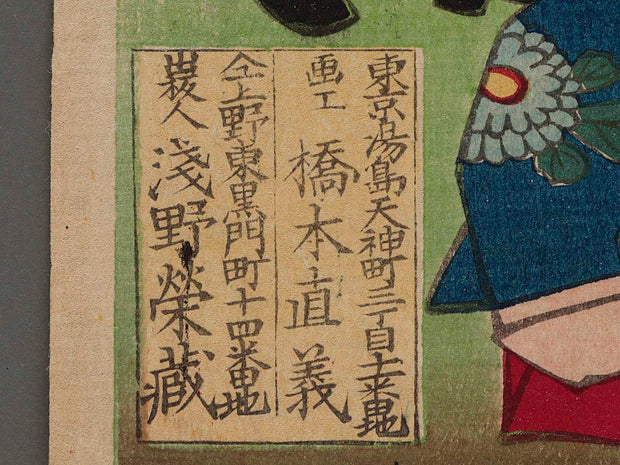 東京湯島天神町三丁目十二番地
画工 橋本直義
仝上野東黒門町十四番地
出板人 淺野榮藏